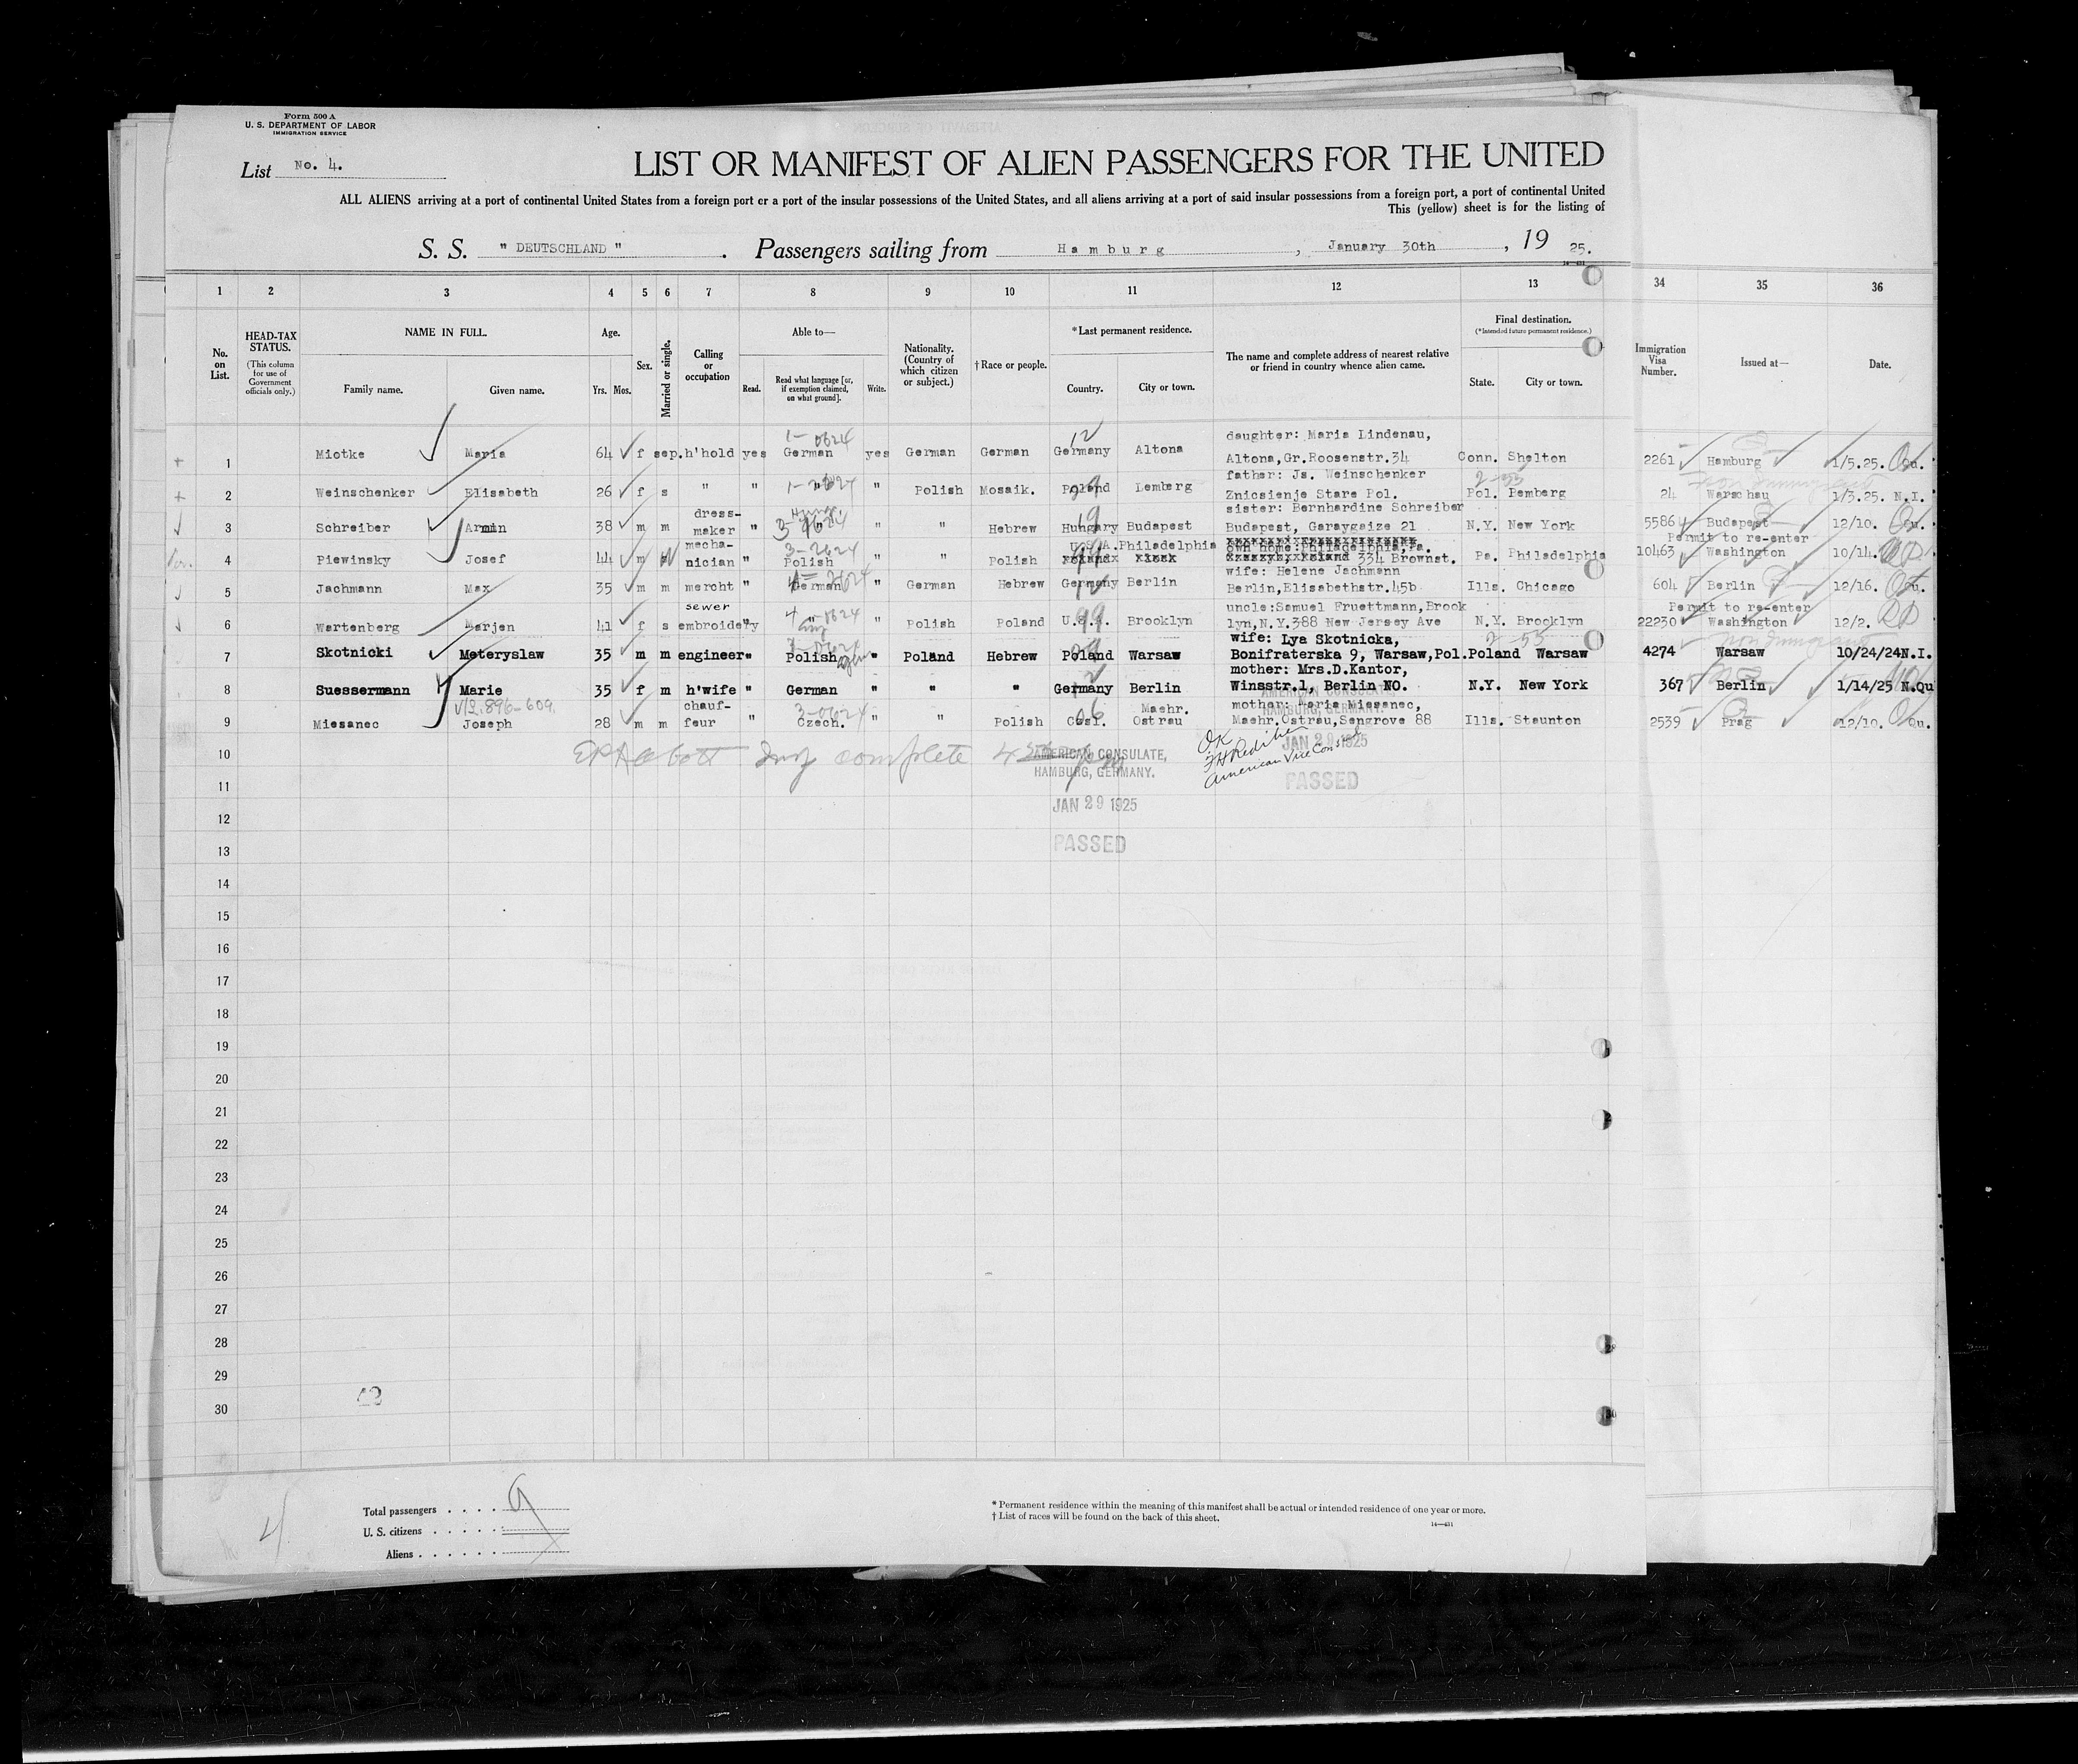 Form 500 A
U. S. DEPARTMENT OF LABOR
IMMIGRATION SERVICE
List No. 4.
LIST OR MANIFEST OF ALIEN PASSENGERS FOR THE UNITED
ALL ALIENS arriving at a port of continental United States from a foreign port or a port of the insular possessions of the United States, and all aliens arriving at a port of said insular possessions from a foreign port, a port of continental United
This (yellow) sheet is for the listing of
S. S. " DEUTSCHLAND " . Passengers sailing from Hamburg , January 30th , 19 25.
1 2 3 4 5 6 7 8 9 10 11 12 13 34 35 36
No. on List.
HEAD-TAX STATUS.
(This column for use of Government officials only.)
NAME IN FULL.
Family name. Given name.
Age.
Yrs. Mos.
Sex.
Married or single.
Calling or occupation
Able to—
Read. Read what language [or, if exemption claimed, on what ground]. Write.
Nationality. (Country of which citizen or subject.)
†Race or people.
*Last permanent residence.
Country. City or town.
The name and complete address of nearest relative or friend in country whence alien came.
Final destination.
(*Intended future permanent residence.)
State. City or town.
Immigration Visa Number.
Issued at—
Date.
daughter: Maria Lindenau,
1 Miotke Maria 64 f sep. h'hold yes German yes German German Germany Altona Altona,Gr.Roosenstr.34 Conn. Shelton 2261 Hamburg 1/5.25. Qu.
father: Js. Weinschenker
2 Weinschenker Elisabeth 26 f s " " " " Polish Mosaik. Poland Lemberg Znicsienje Stare Pol. Pol. Pemberg 24 Warschau 1/3.25. N.I.
sister: Bernhardine Schreiber
3 Schreiber Armin 38 m m dress-maker " " " " Hebrew Hungary Budapest Budapest, Garaygaize 21 N.Y. New York 5586 Budapest 12/10. Qu.
U.S.A. Philadelphia own home:Philadelphia,Pa. Permit to re-enter
4 Piewinsky Josef 44 m mecha-nician " Polish " " Polish 334 Brownst. Pa. Philadelphia 10463 Washington 10/14.
wife: Helene Jachmann
5 Jachmann Max 35 m m mercht " German " German Hebrew Germany Berlin Berlin,Elisabethstr.45b Ills. Chicago 604 Berlin 12/16. Qu.
uncle:Samuel Fruettmann,Brook Permit to re-enter
6 Wartenberg Marjen 41 f s sewer embroidery " " Polish Poland U.S.A. Brooklyn lyn,N.Y.388 New Jersey Ave N.Y. Brooklyn 22230 Washington 12/2.
wife: Lya Skotnicka,
7 Skotnicki Meteryslaw 35 m m engineer " Polish " Poland Hebrew Poland Warsaw Bonifraterska 9, Warsaw,Pol. Poland Warsaw 4274 Warsaw 10/24/24 N.I.
mother: Mrs.D.Kantor,
8 Suessermann Marie 35 f m h'wife " German " " " Germany Berlin Winsstr.1, Berlin NO. N.Y. New York 367 Berlin 1/14/25 N.Qu
mother: Maria Miesanec,
9 Miesanec Joseph 28 m m chauf-feur " Czech. " " Polish Cssl. Maehr. Ostrau Maehr.Ostrau,Sengrove 88 Ills. Staunton 2539 Prag 12/10. Qu.
10
AMERICAN CONSULATE,
HAMBURG, GERMANY.
JAN 29 1925
PASSED
AMERICAN CONSULATE,
HAMBURG, GERMANY.
JAN 29 1925
PASSED
O.K.
American Vice Consul
11
12
13
14
15
16
17
18
19
20
21
22
23
24
25
26
27
28
29
30
Total passengers . . . . 9
U. S. citizens . . . . .
Aliens . . . . . .
4
* Permanent residence within the meaning of this manifest shall be actual or intended residence of one year or more.
† List of races will be found on the back of this sheet.
14—431